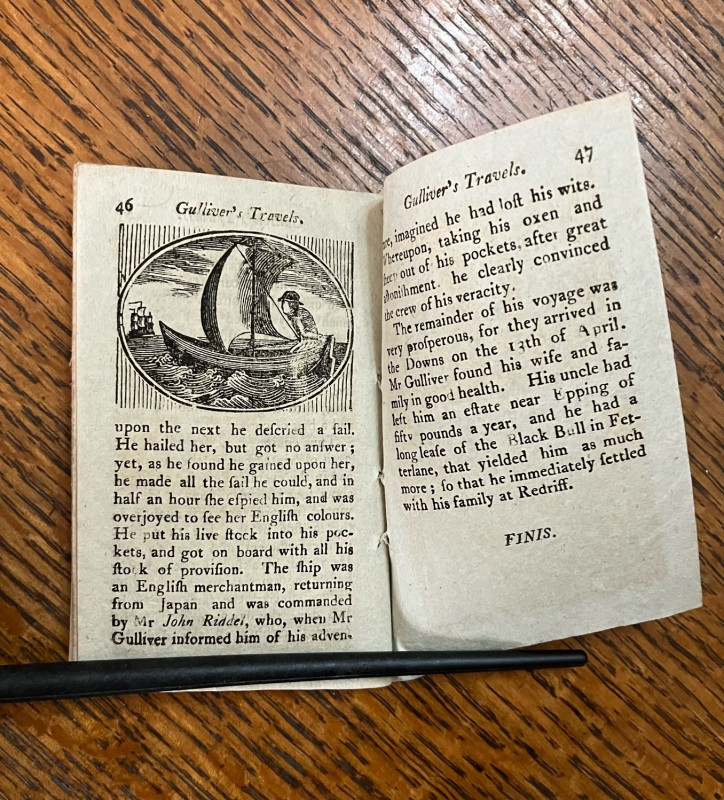 46
Gulliver's Travels.
upon the next he deſcried a ſail.
He hailed her, but got no anſwer;
yet, as he found he gained upon her,
he made all the ſail he could, and in
half an hour ſhe eſpied him, and was
overjoyed to ſee her Engliſh colours.
He put his live ſtock into his poc-
kets, and got on board with all his
ſtock of proviſion. The ſhip was
an Engliſh merchantman, returning
from Japan and was commanded
by Mr John Riddel, who, when Mr
Gulliver informed him of his adven-
47
Gulliver's Travels.
imagined he had loſt his wits.
Whereupon, taking his oxen and
out of his pockets, after great
aſtoniſhment. he clearly convinced
the crew of his veracity.
The remainder of his voyage was
very proſperous, for they arrived in
the Downs on the 13th of April.
Mr Gulliver found his wife and fa-
mily in good health. His uncle had
left him an eſtate near Epping of
fifty pounds a year, and he had a
long leaſe of the Black Bull in Fet-
terlane, that yielded him as much
more; ſo that he immediately ſettled
with his family at Redriff.
FINIS.